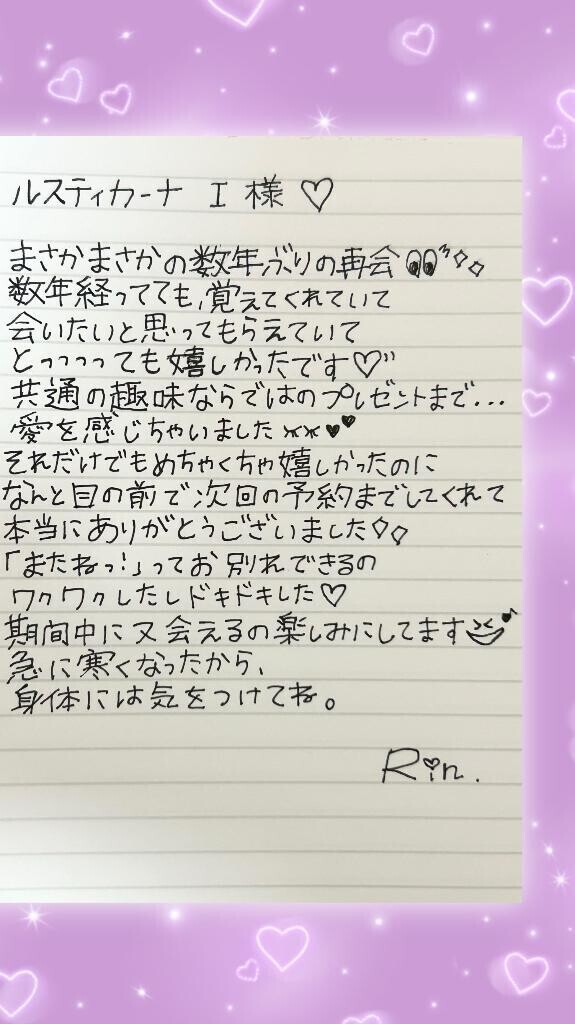 ルスティカーナ I 様♡
まさかまさかの数年ぶりの再会👀
数年経ってても、覚えてくれていて
会いたいと思ってもらえていて
とっっっっても嬉しかったです♡
共通の趣味ならではのプレゼントまで...
愛を感じちゃいました
それだけでもめちゃくちゃ嬉しかったのに
なんと目の前で次回の予約までしてくれて
本当にありがとうございました
「またねっ!」ってお別れできるの
ワクワクしたしドキドキした♡
期間中に又会えるの楽しみにしてます
急に寒くなったから、
身体には気をつけてね。
Rin.